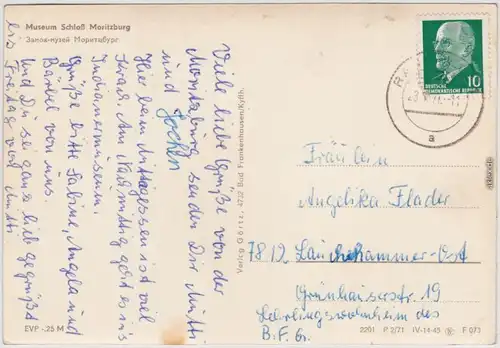 Museum Schloß Moritzburg
Замок-музей Морицбург
Viele liebe Grüße von der
Moritzburg senden Dir Mutti
und Jochen
Hier beim Mittagessen ist viel
Krach. Am Nachmittag geht es ins
Indianermuseum.
Grüße bitte Sabine, Angela und
Bärbel von uns.
Und Du sei ganz lieb gegrüßt
bis Freitag von Mutti
EVP -.25 M
Verlag Görtz, 4732 Bad Frankenhausen/Kyffh.
10
DEUTSCHE
DEMOKRATISCHE REPUBLIK
a
Fräulein
Angelika Flader
7812 Lauchhammer-Ost
Grünhauserstr. 19
Lehrlingswohnheim des
B.F.G.
2201 P 2/71 IV-14-45 F 073